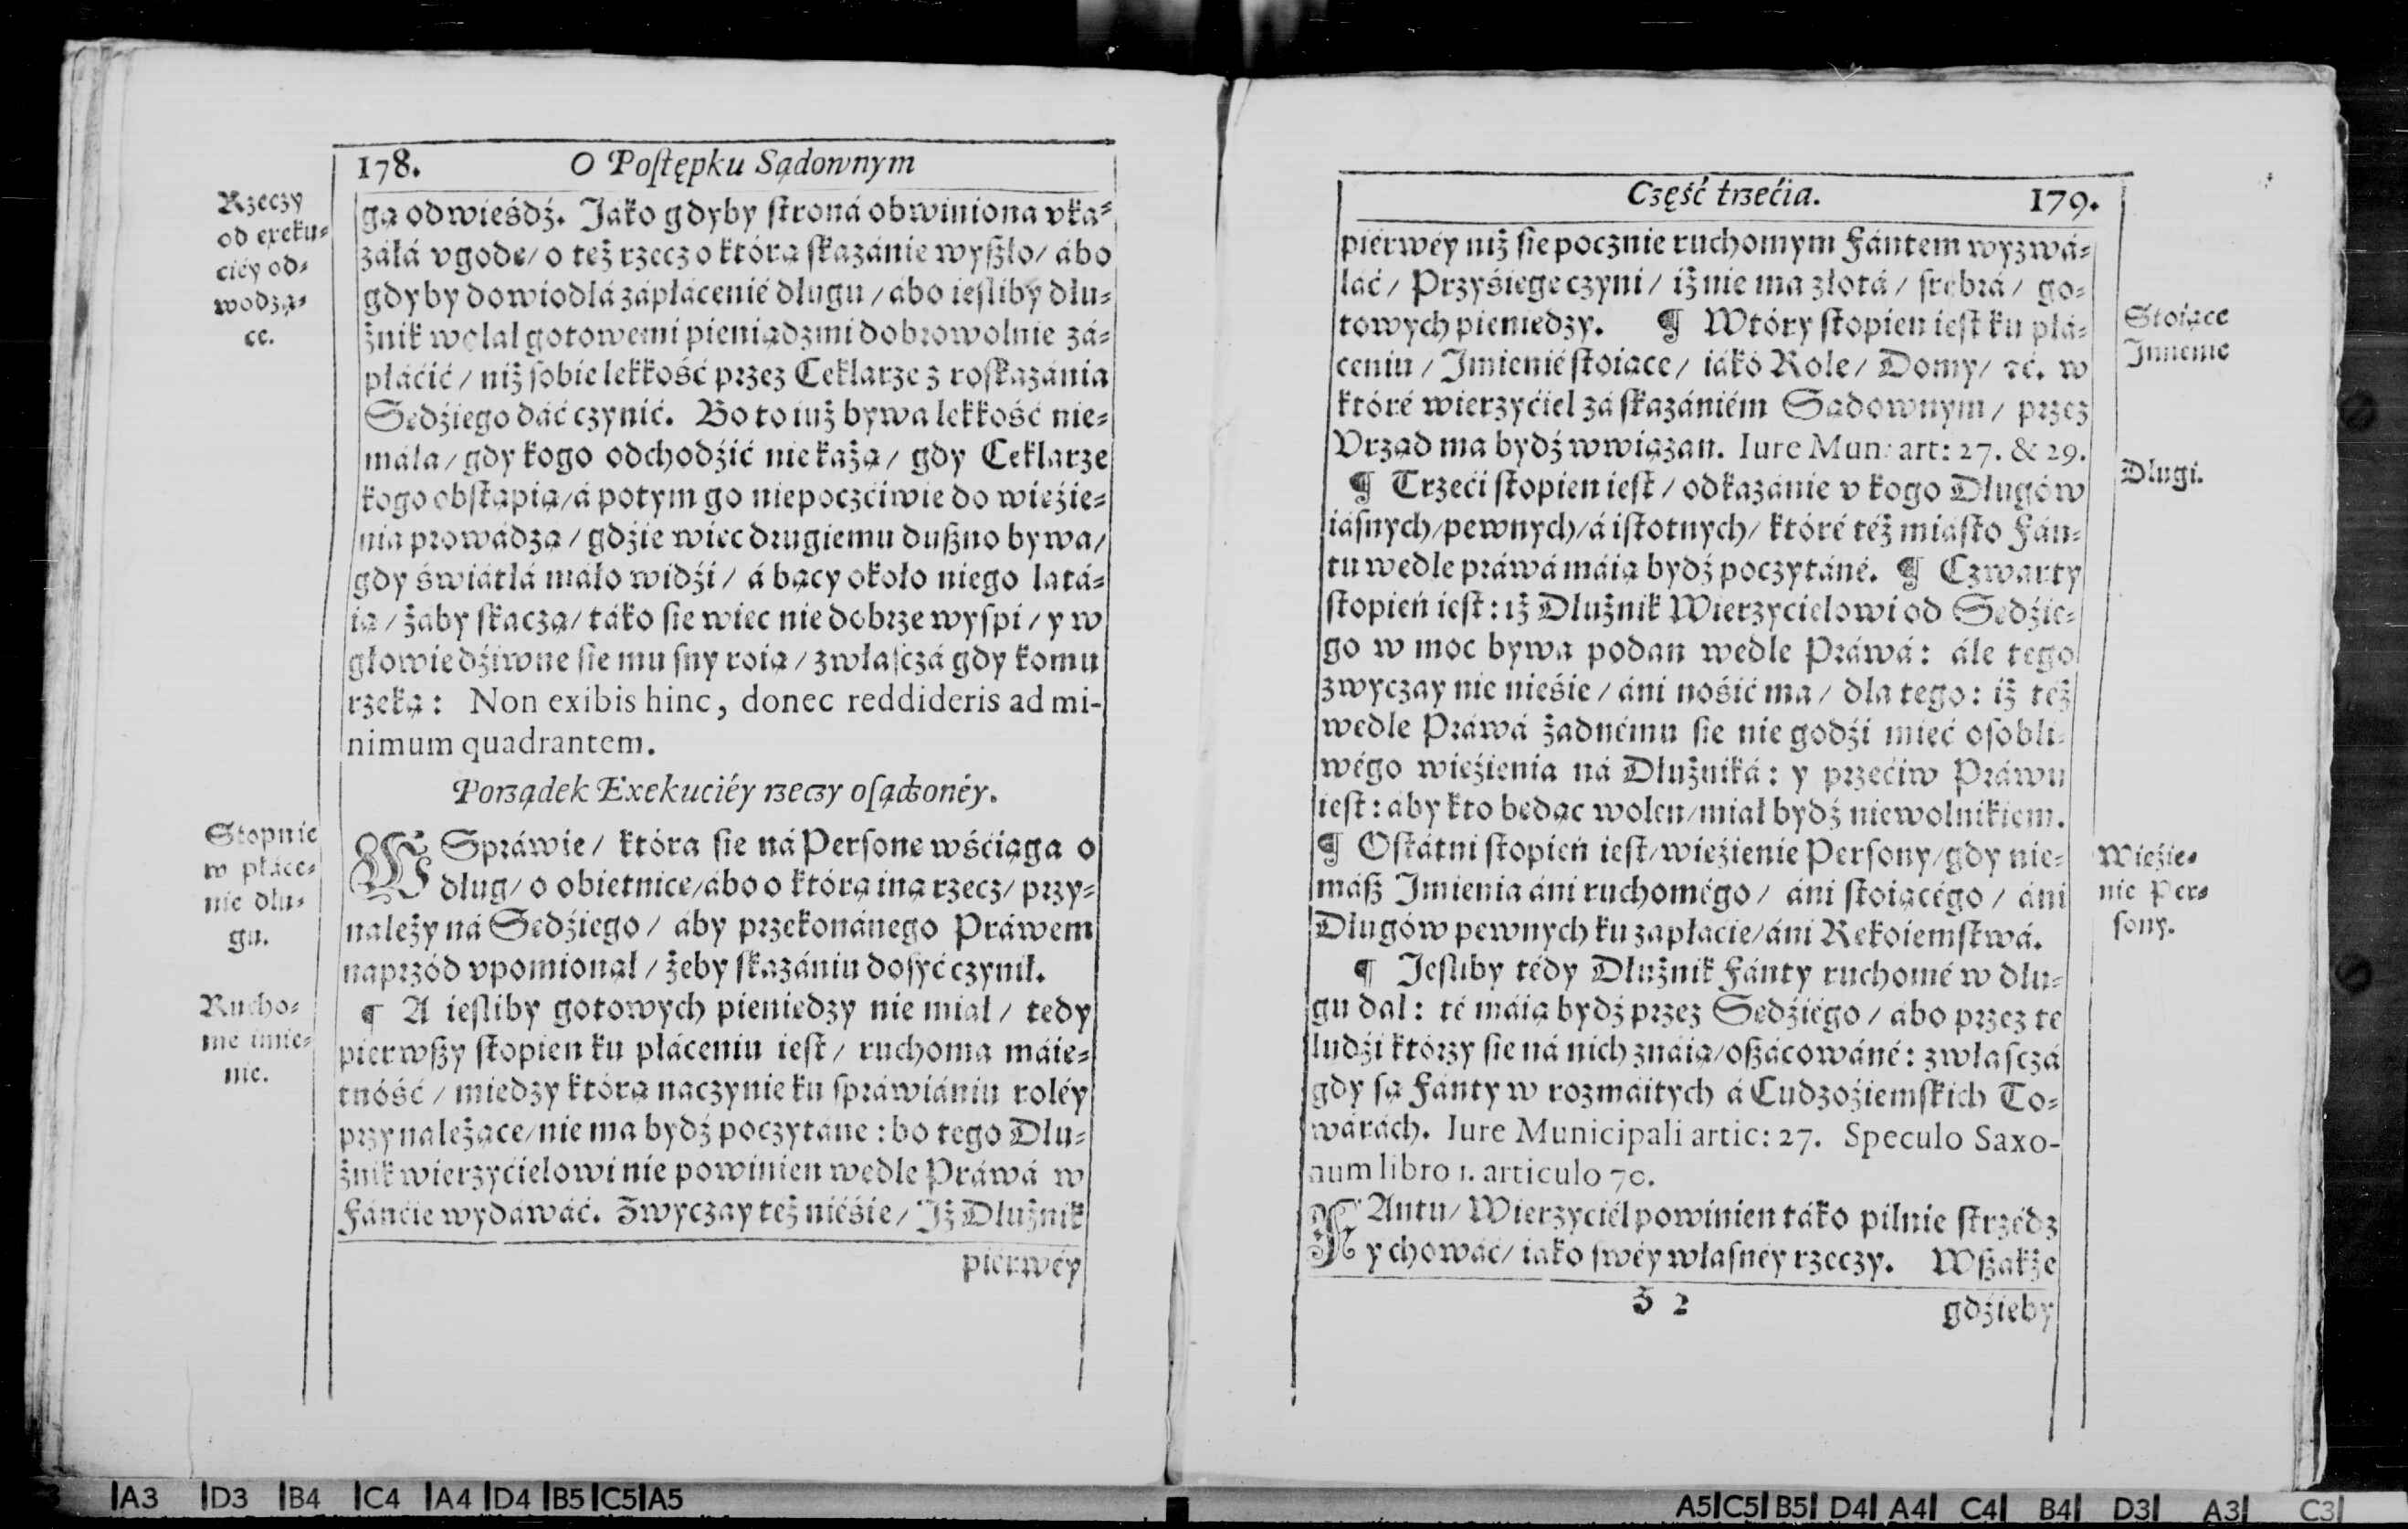 178. O Poſtępku Sądownym
Rzeczy
od exeku⸗
ciéy od⸗
wodzą⸗
ce.
gą odwieśdź. Jáko gdyby ſtroná obwiniona vká⸗
záłá vgode/ o też rzecz o którą ſkazánie wyſzło/ ábo
gdyby dowiodłá zápłácenié długu / ábo ieſliby dłu⸗
żnik wolał gotowemi pieniądzmi dobrowolnie zá⸗
płáćić / niż ſobie lekkość przez Ceklarze z roſkazánia
Sędźiego dáć czynić. Bo to iuż bywa lekkość nie⸗
máła / gdy kogo odchodźić nie każą / gdy Ceklarze
kogo obſtąpią/ á potym go niepoczćiwie do wieźie⸗
nia prowádzą / gdźie wiec drugiemu duſzno bywa/
gdy świátłá máło widźi / á bący około niego latá⸗
ią / żaby ſkaczą/ táko ſie wiec nie dobrze wyſpi / y w
głowie dźiwne ſie mu ſny roią / zwłaſczá gdy komu
rzeką: Non exibis hinc, donec reddideris ad mi-
nimum quadrantem.
Porządek Exekuciéy rzeczy oſądzonéy.
Stopnie
w płáce⸗
nie dłu⸗
gu.
W Spráwie / która ſie ná Perſone wśćiąga o
dług/ o obietnice/ ábo o którą iną rzecz/ przy⸗
należy ná Sędźiego / áby przekonánego Práwem
naprzód vpomionął / żeby ſkazániu doſyć czynił.
Rucho⸗
me imie⸗
nie.
¶ A ieſliby gotowych pieniedzy nie miał / tedy
pierwſzy ſtopien ku płáceniu ieſt / ruchoma máie⸗
tność / miedzy którą naczynie ku ſpráwiániu roléy
przynależące/ nie ma bydź poczytáne : bo tego Dłu⸗
żnik wierzyćielowi nie powinien wedle Práwá w
Fánćie wydáwáć. Zwyczay też nieśie / Jż Dłużnik
pierwéy
Część trzećia. 179.
piérwéy niż ſie pocznie ruchomym Fántem wyzwá⸗
láć / Przyśiege czyni / iż nie ma złotá / ſrebrá / go⸗
towych pieniedzy. ¶ Wtóry ſtopien ieſt ku płá⸗
ceniu / Jmienié ſtoiące / iáko Role / Domy / ꝛć. w
któré wierzyćiel zá ſkazániém Sądownym / przez
Vrząd ma bydź wwiązan. Iure Mun: art: 27. & 29.
Stoiące
Jmienie
¶ Trzeći ſtopien ieſt / odkazánie v kogo Długów
iáſnych/ pewnych/ á iſtotnych/ któré téż miáſto Fán⸗
tu wedle práwá máią bydź poczytáné. ¶ Czwarty
ſtopień ieſt : iż Dłużnik Wierzycielowi od Sędźie⸗
go w moc bywa podan wedle Práwá: ále tego
zwyczay nie nieśie / áni nośić ma / dla tego: iż też
wedle Práwá żadnému ſie nie godźi mieć oſobli⸗
wégo wieźienia ná Dłużniká: y przećiw Práwu
ieſt: áby kto bedąc wolen/ miał bydź niewolnikiem.
Długi.
¶ Oſtátni ſtopień ieſt/ wieźienie Perſony/ gdy nie⸗
máſz Jmienia áni ruchomégo / áni ſtoiącégo / áni
Długów pewnych ku zapłácie/ áni Rekoiemſtwá.
Wieźie⸗
nie Per⸗
ſony.
¶ Jeſliby tédy Dłużnik Fánty ruchomé w dłu⸗
gu dał: té máią bydź przez Sędźiégo / ábo przez te
ludźi którzy ſie ná nich znáią/ oſzácowáné: zwłaſczá
gdy ſą Fánty w rozmáitych á Cudzoźiemſkich To⸗
wárách. Iure Municipali artic: 27. Speculo Saxo-
num libro 1. articulo 70.
FAntu/ Wierzyćiél powinien táko pilnie ſtrzédz
y chowáć/ iáko ſwéy właſnéy rzeczy. Wſzákże
Z 2 gdźieby
A3 D3 B4 C4 A4 D4 B5 C5 A5
A5 C5 B5 D4 A4 C4 B4 D3 A3 C3